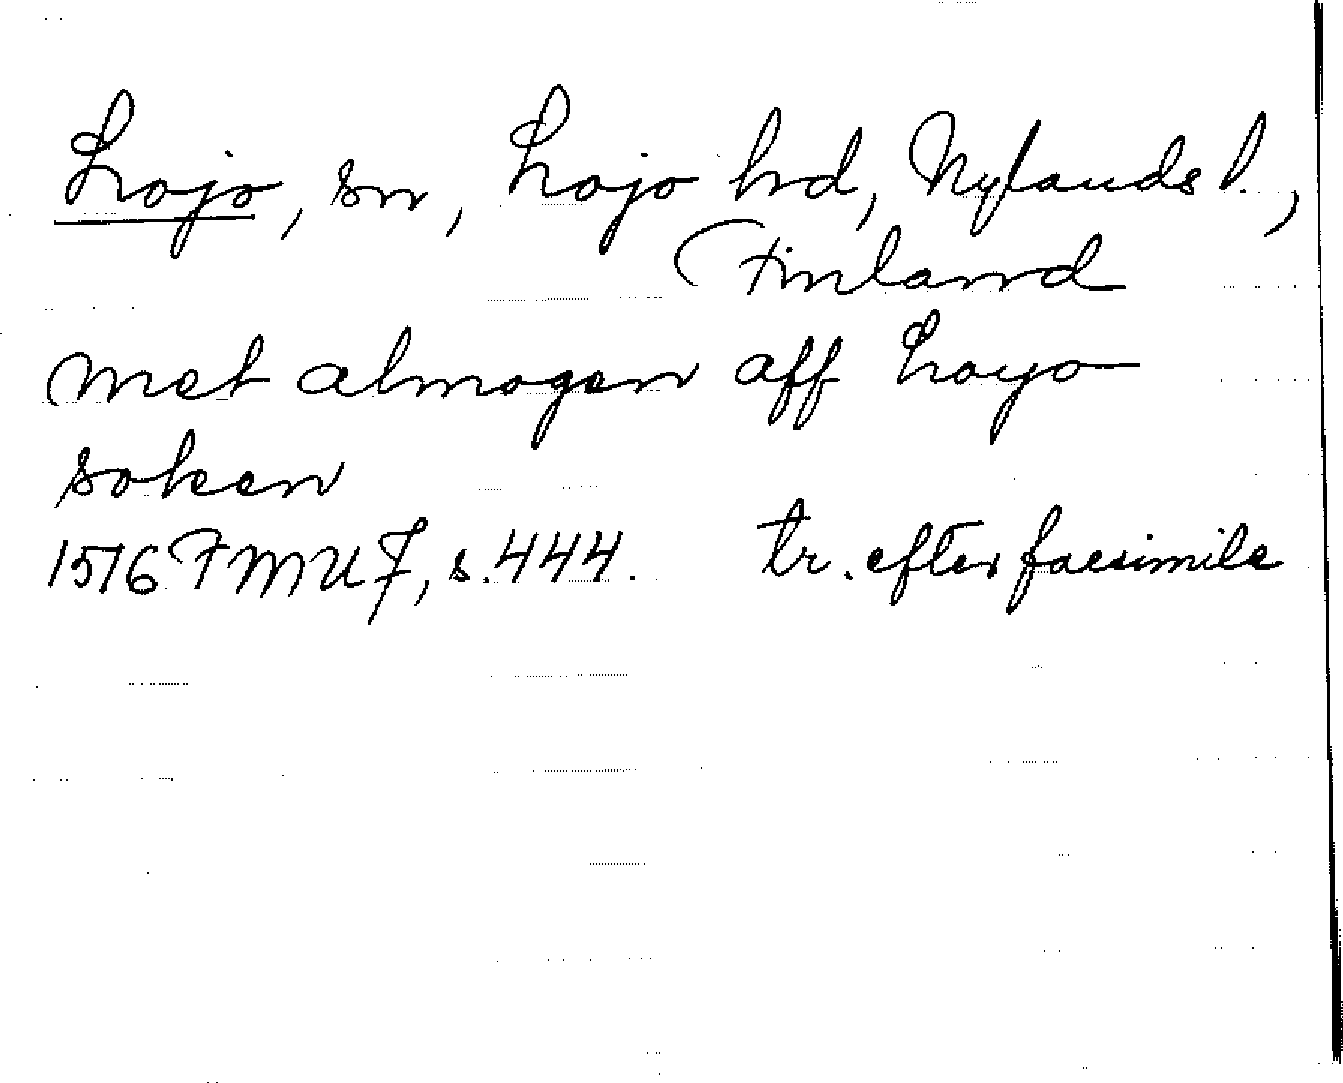 Lojo, sn, Lojo hrd, Nylands l.,
Finland
met almogen aff Loyo
soken
1576 FMU F, s. 444. tr. efter facsimile